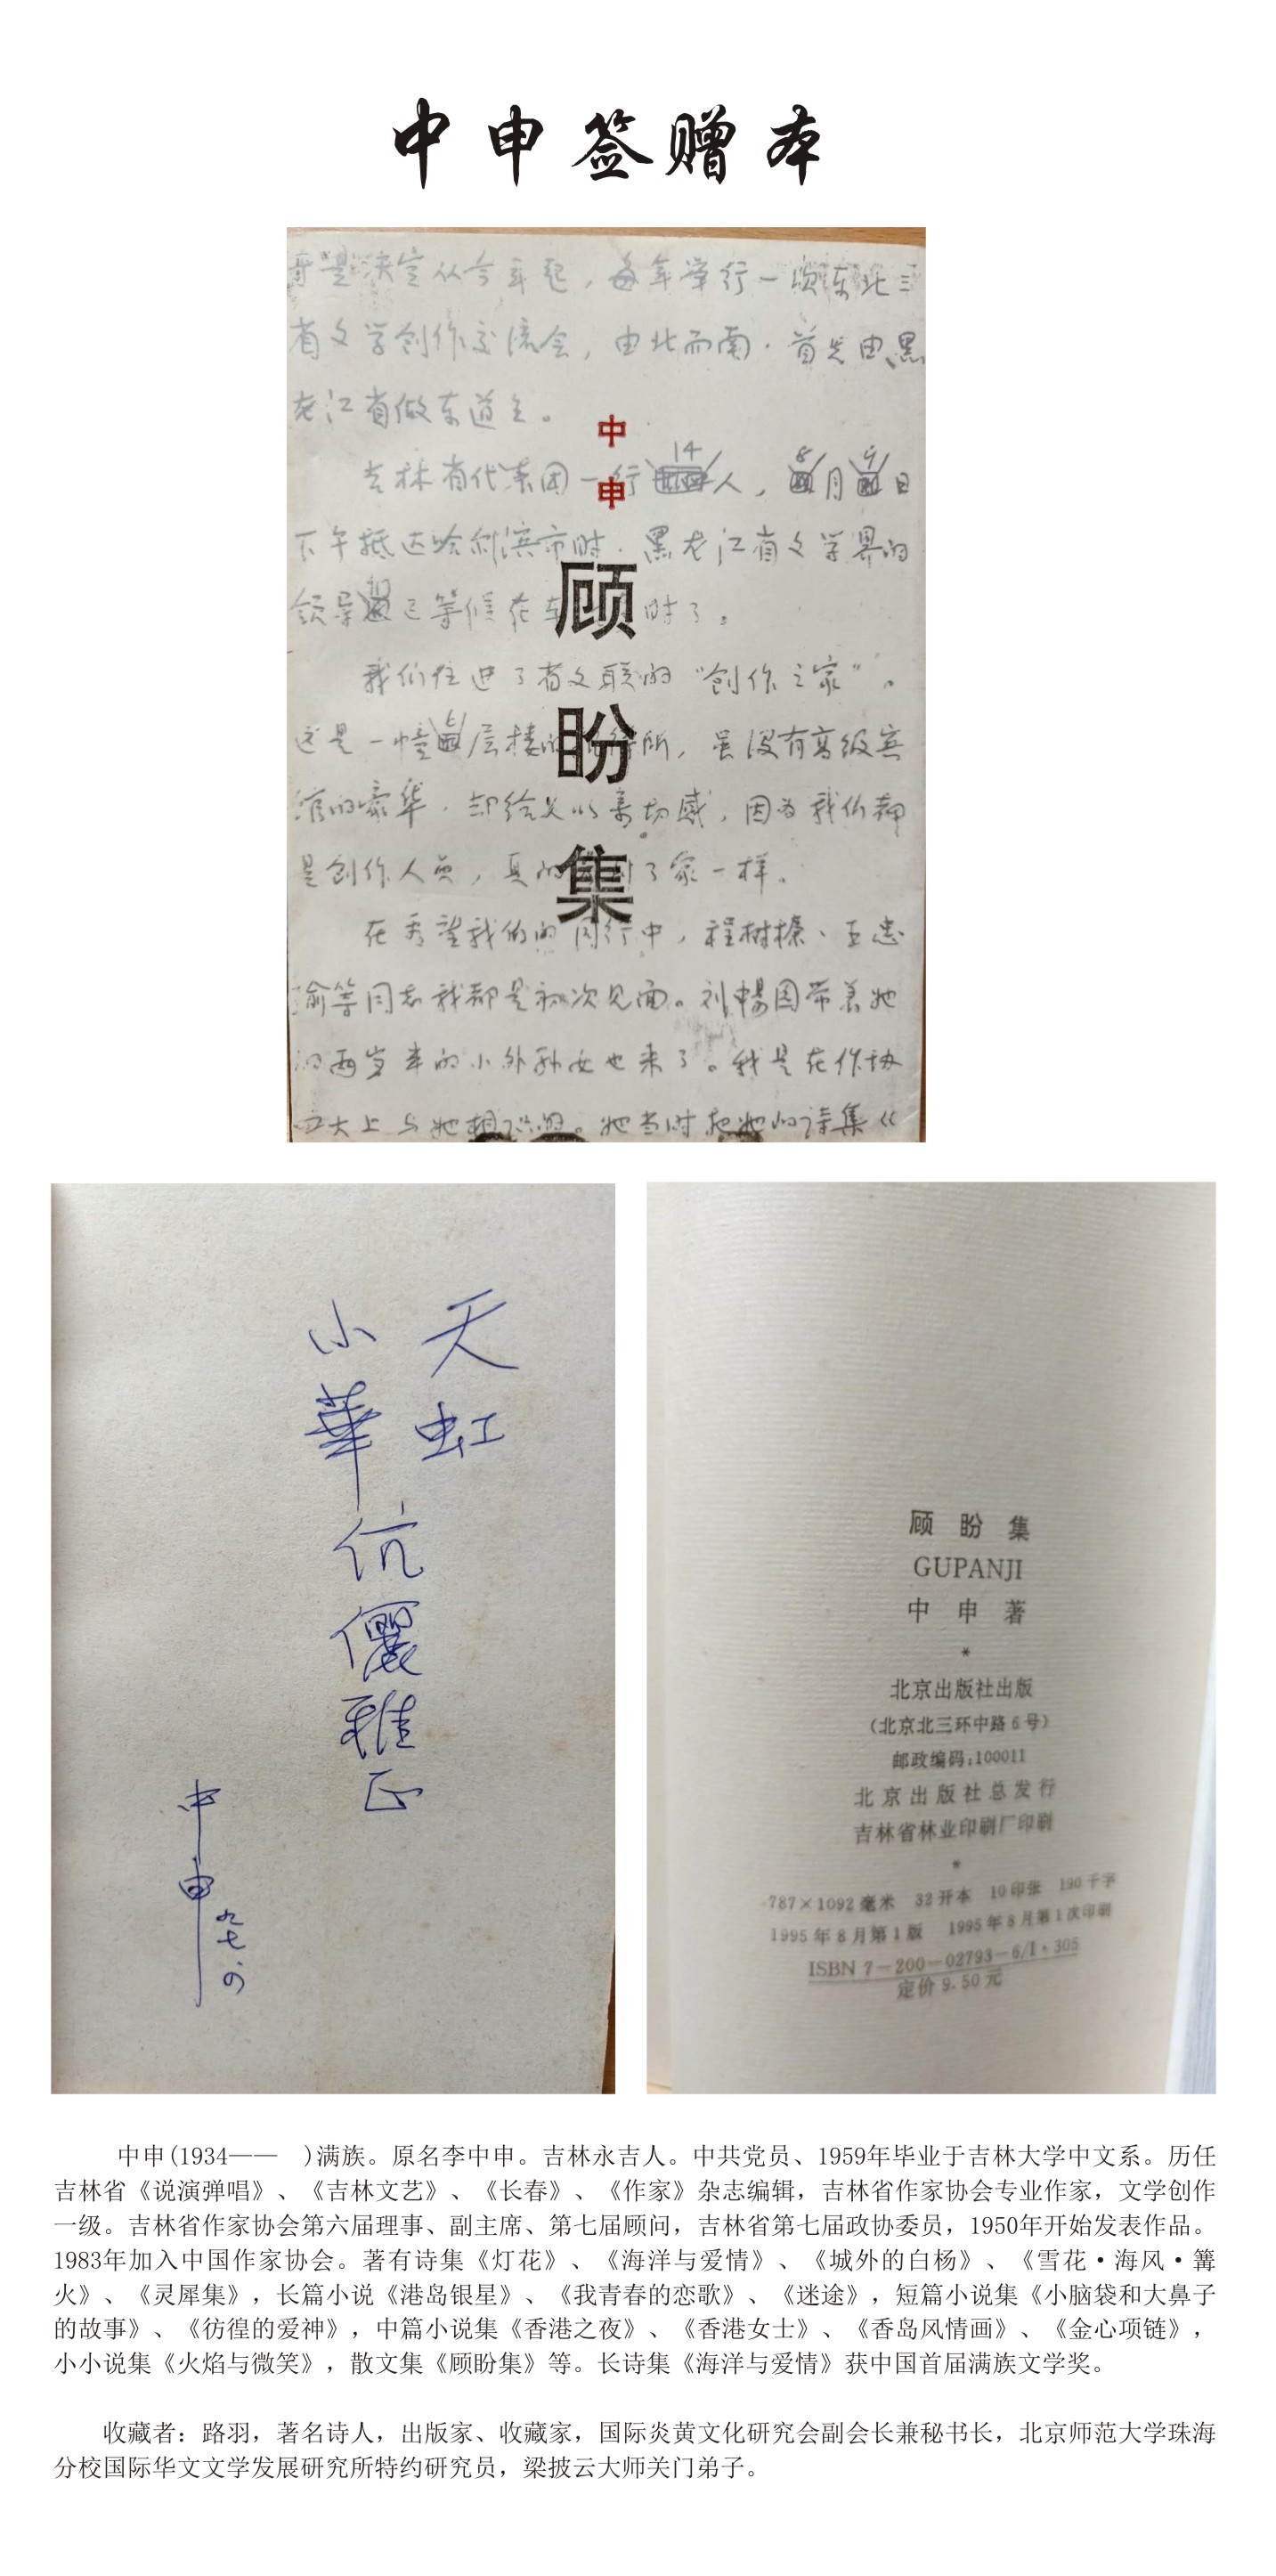 中申签赠本
于是决定从今年起，每年举行一次东北三
省文学创作交流会，由北而南，首先由黑
龙江省做东道主。
吉林省代表团一行14人，8月9日
下午抵达哈尔滨市时，黑龙江省文学界的
领导已等候在车 时了。
我们住进了省文联的“创作之家”。
这是一幢七层楼的招待所，虽没有高级宾
馆的豪华，却给人以亲切感，因为我们都
是创作人员，真的 到了家一样。
在看望我们的同行中，程树榛、
等同志我都是初次见面。刘畅园带着她
的两岁半的小外孙女也来了。我是在作协
四大上与她相识的。她当时把她的诗集《
中
申
顾
盼
集
天虹
小華伉儷雅正
中申
九七.
顾盼集
GUPANJI
中申著
*
北京出版社出版
（北京北三环中路6号）
邮政编码：100011
北京出版社总发行
吉林省林业印刷厂印刷
*
787×1092毫米 32开本 10印张 190千字
1995年8月第1版 1995年8月第1次印刷
ISBN 7-200-02793-6/I·305
定价9.50元
中申(1934—— )满族。原名李中申。吉林永吉人。中共党员、1959年毕业于吉林大学中文系。历任
吉林省《说演弹唱》、《吉林文艺》、《长春》、《作家》杂志编辑，吉林省作家协会专业作家，文学创作
一级。吉林省作家协会第六届理事、副主席、第七届顾问，吉林省第七届政协委员，1950年开始发表作品。
1983年加入中国作家协会。著有诗集《灯花》、《海洋与爱情》、《城外的白杨》、《雪花·海风·篝
火》、《灵犀集》，长篇小说《港岛银星》、《我青春的恋歌》、《迷途》，短篇小说集《小脑袋和大鼻子
的故事》、《彷徨的爱神》，中篇小说集《香港之夜》、《香港女士》、《香岛风情画》、《金心项链》，
小小说集《火焰与微笑》，散文集《顾盼集》等。长诗集《海洋与爱情》获中国首届满族文学奖。
收藏者：路羽，著名诗人，出版家、收藏家，国际炎黄文化研究会副会长兼秘书长，北京师范大学珠海
分校国际华文文学发展研究所特约研究员，梁披云大师关门弟子。